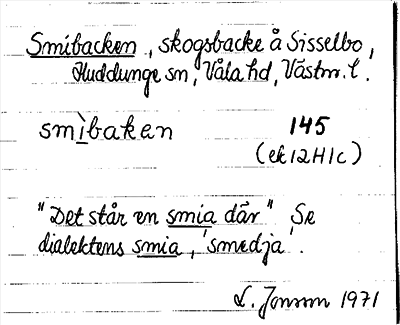 Smibacken, skogsbacke å Sisselbo,
Huddunge sn, Våla hd, Västm. l.
smìbaken 145
(ek 12H1c)
"Det står en smia där" Se
dialektens smia, 'smedja'.
L. Jonson 1971